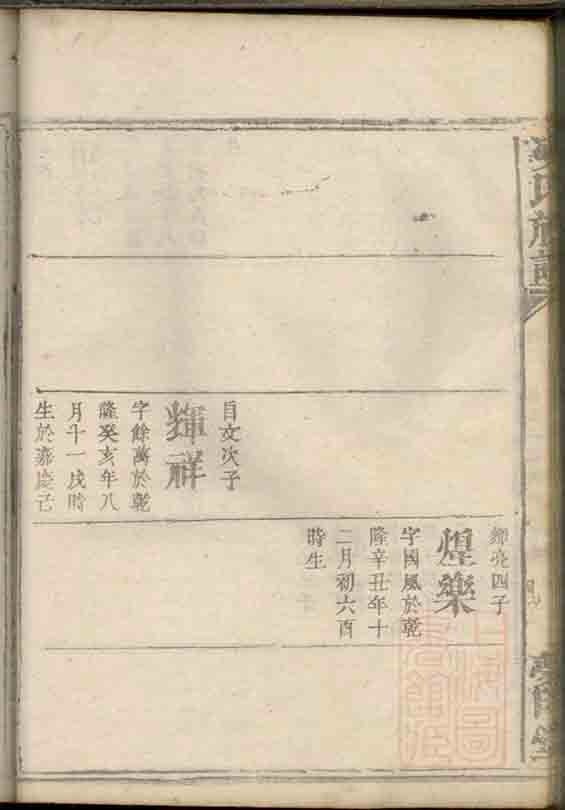 氏族譜
錦亮四子
煌樂
字國風於乾
隆辛丑年十
二月初六酉
時生
自文次子
輝祥
字餘萬於乾
隆癸亥年八
月十一戌時
生於嘉慶己